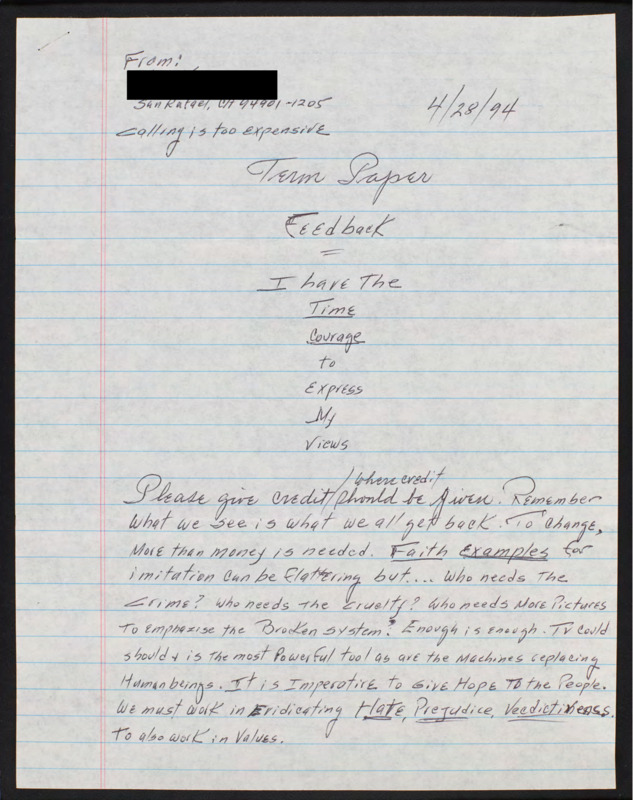 From:
San Rafael, CA 94901-1205
4/28/94
Calling is too expensive
Term Paper
Feedback
I have The
Time
Courage
to
Express
My
Views
where credit
Please give credit / should be given. Remember
What we see is what we all get back. To change,
More than money is needed. Faith Examples for
imitation can be flattering but.... Who needs The
Crime? Who needs The Cruelty? Who needs More Pictures
To emphasise the Broken system? Enough is enough. TV could
should & is the most Powerful tool as are the Machines replacing
Human beings. It is Imperative to Give Hope To the People.
We must work in Eridicating Hate, Prejudice,
To also work in Values.